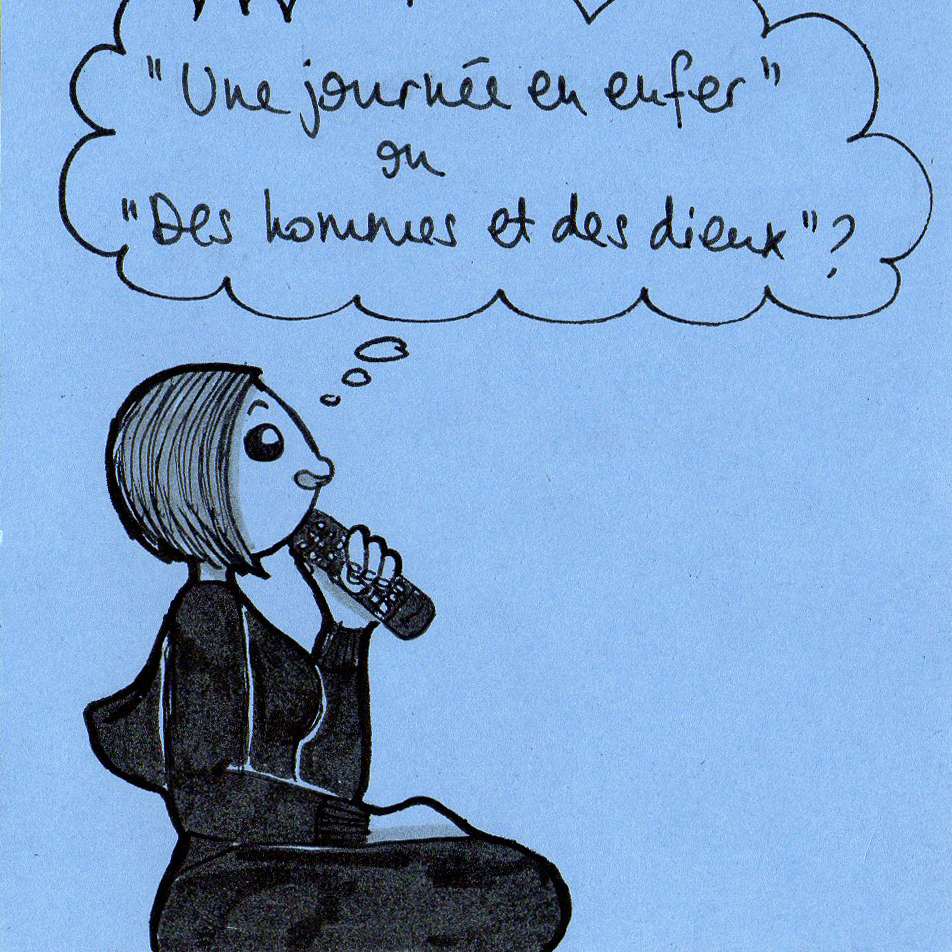 "Une journée en enfer"
ou
"Des hommes et des dieux"?